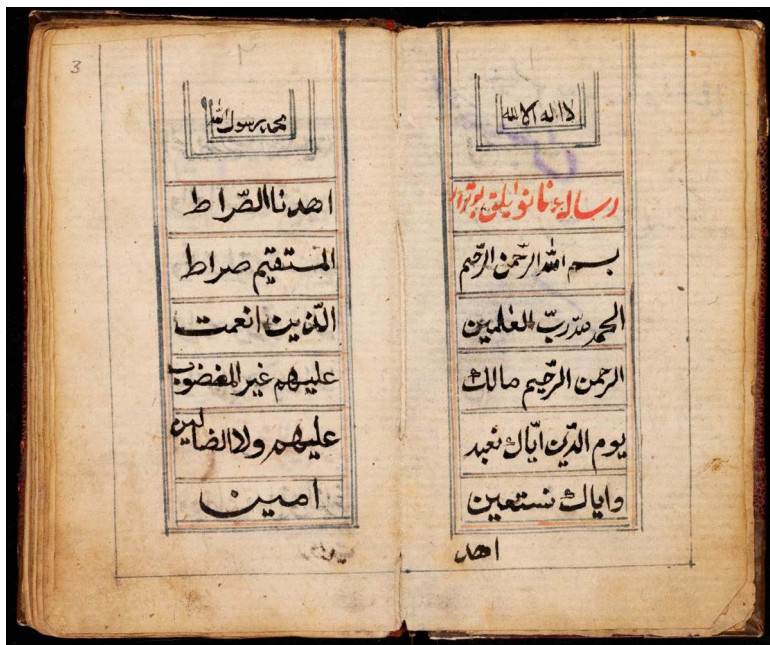 لا اله الا الله
رسالهء نانوایلق
بسم الله الرّحمن الرّحیم
الحمد لله ربّ العٰلمین
الرحمن الرّحیم مالك
یوم الدّین ایّاك نعبد
وایاك نستعین
اهد
3
٢
محمد رسول الله
اهدنا الصّراط
المستقیم صراط
الّذین انعمت
علیهم غیر المغضوب
علیهم ولا الضالین
امین